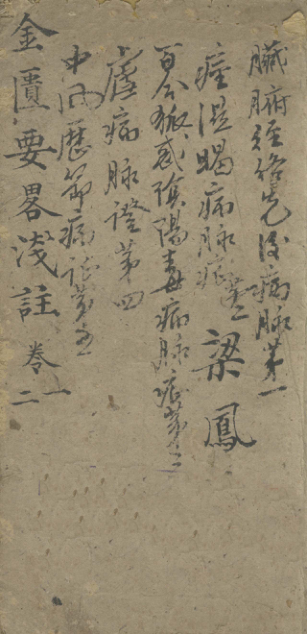 臟腑經絡先後病脉第一
痙濕暍病脉症第二
梁鳳
百合狐惑陰陽毒病脉症第三
瘧病脉證第四
中风歷節病证第五
金匱要畧淺註 卷一二